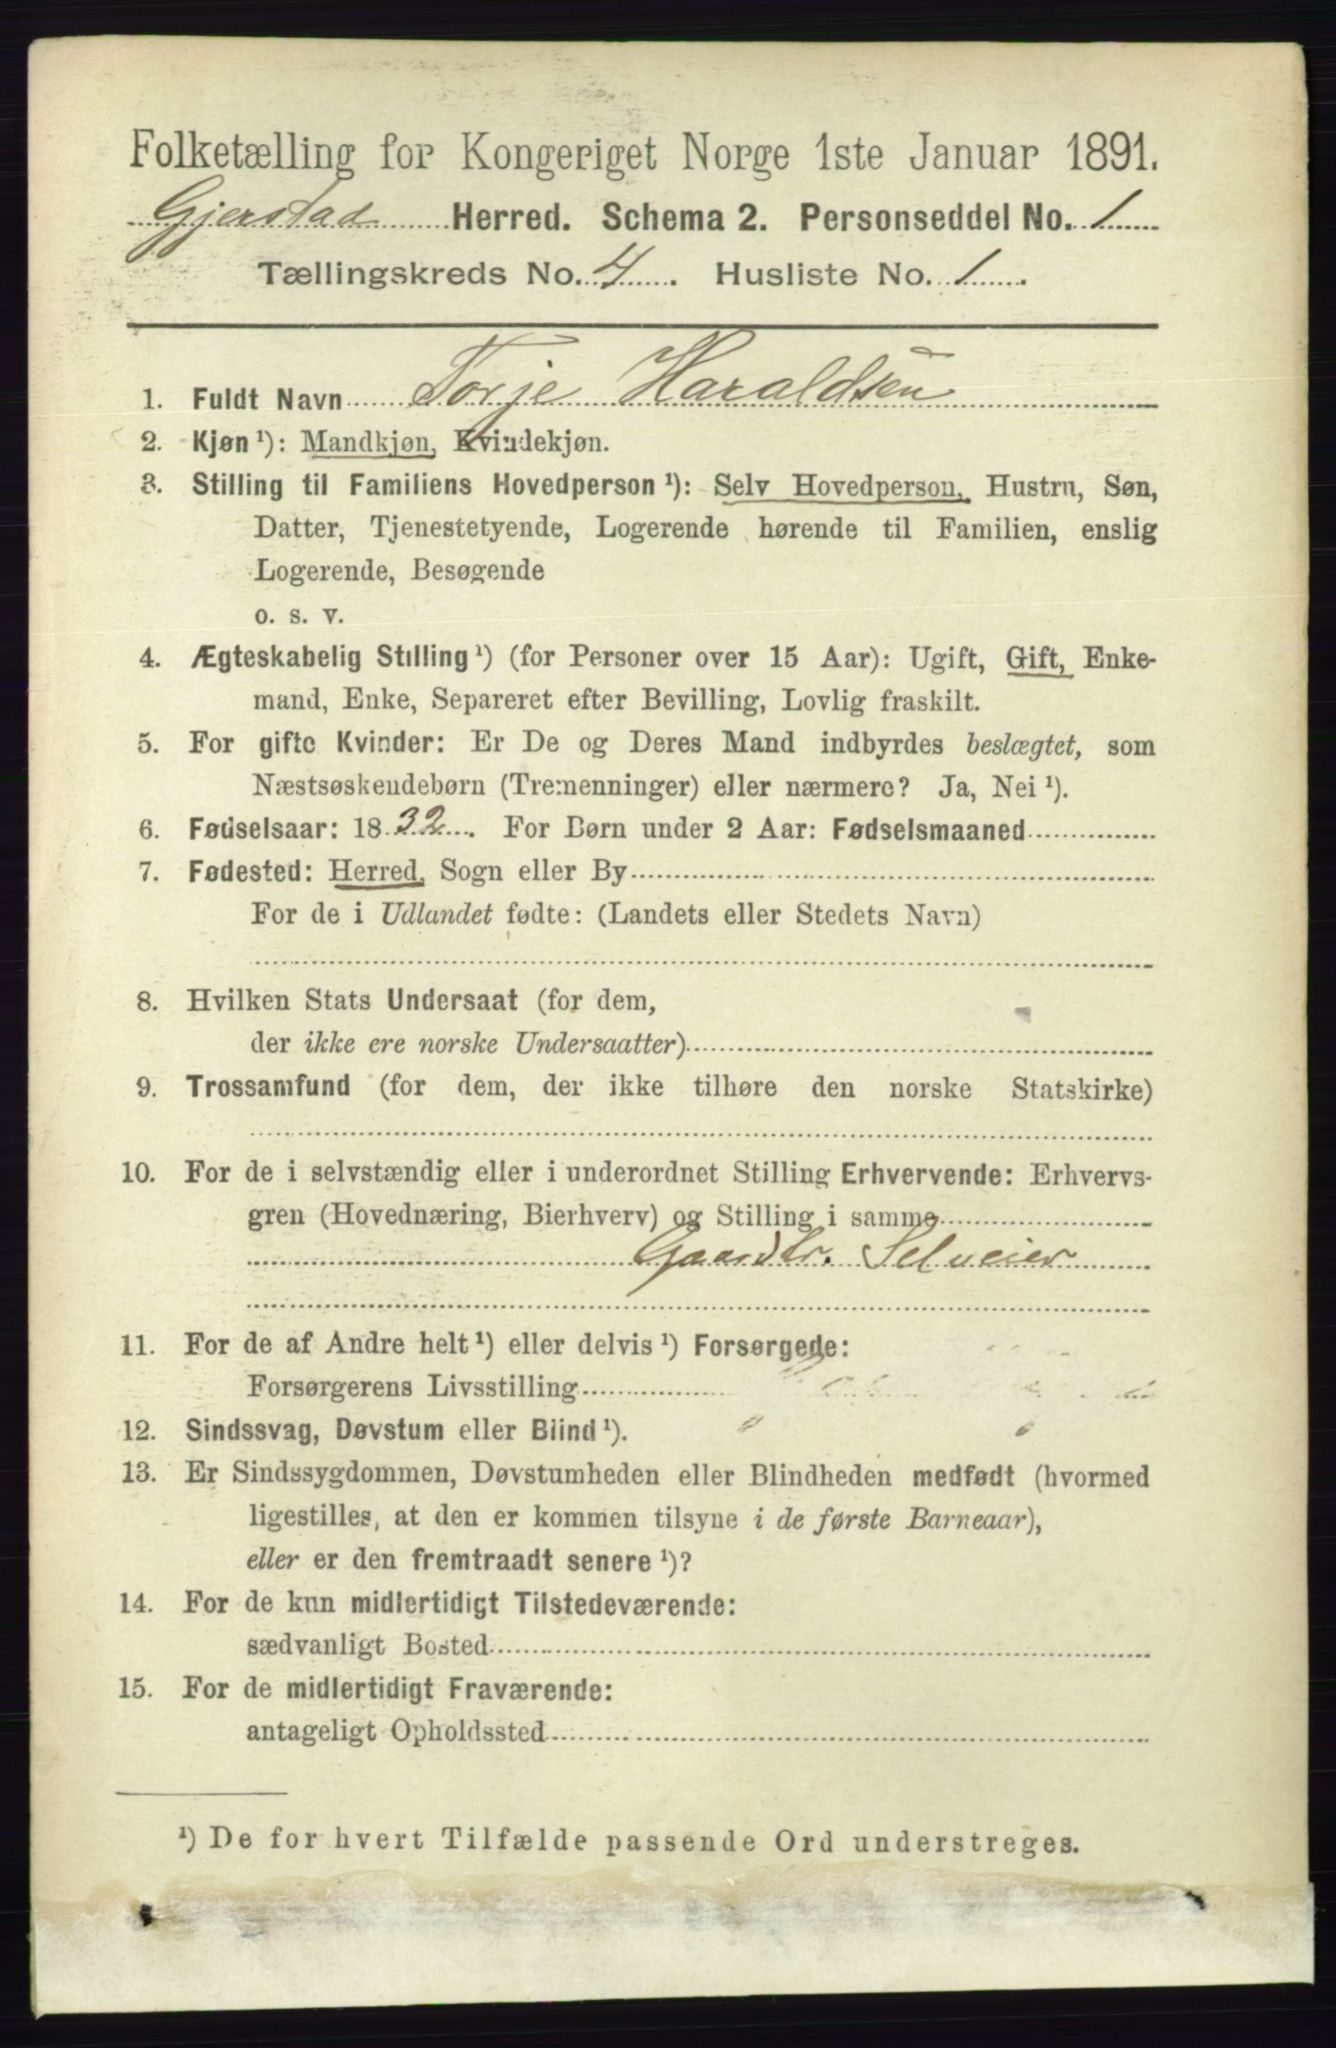 Folketælling for Kongeriget Norge 1ste Januar 1891.
Gjerstad Herred. Schema 2. Personseddel No. 1
Tællingskreds No. 4. Husliste No. 1.
1. Fuldt Navn Torje Haraldsen
2. Kjøn ¹): Mandkjøn, Kvindekjøn.
3. Stilling til Familiens Hovedperson ¹): Selv Hovedperson, Hustru, Søn,
Datter, Tjenestetyende, Logerende hørende til Familien, enslig
Logerende, Besøgende
o. s. v.
4. Ægteskabelig Stilling ¹) (for Personer over 15 Aar): Ugift, Gift, Enke-
mand, Enke, Separeret efter Bevilling, Lovlig fraskilt.
5. For gifte Kvinder: Er De og Deres Mand indbyrdes beslægtet, som
Næstsøskendebørn (Tremenninger) eller nærmere? Ja, Nei ¹).
6. Fødselsaar: 1832. For Børn under 2 Aar: Fødselsmaaned
7. Fødested: Herred, Sogn eller By
For de i Udlandet fødte: (Landets eller Stedets Navn)
8. Hvilken Stats Undersaat (for dem,
der ikke ere norske Undersaatter)
9. Trossamfund (for dem, der ikke tilhøre den norske Statskirke)
10. For de i selvstændig eller i underordnet Stilling Erhvervende: Erhvervs-
gren (Hovednæring, Bierhverv) og Stilling i samme
Gaardbr. Selveier
11. For de af Andre helt ¹) eller delvis ¹) Forsørgede:
Forsørgerens Livsstilling
12. Sindssvag, Døvstum eller Blind ¹).
13. Er Sindssygdommen, Døvstumheden eller Blindheden medfødt (hvormed
ligestilles, at den er kommen tilsyne i de første Barneaar),
eller er den fremtraadt senere ¹)?
14. For de kun midlertidigt Tilstedeværende:
sædvanligt Bosted
15. For de midlertidigt Fraværende:
antageligt Opholdssted
¹) De for hvert Tilfælde passende Ord understreges.